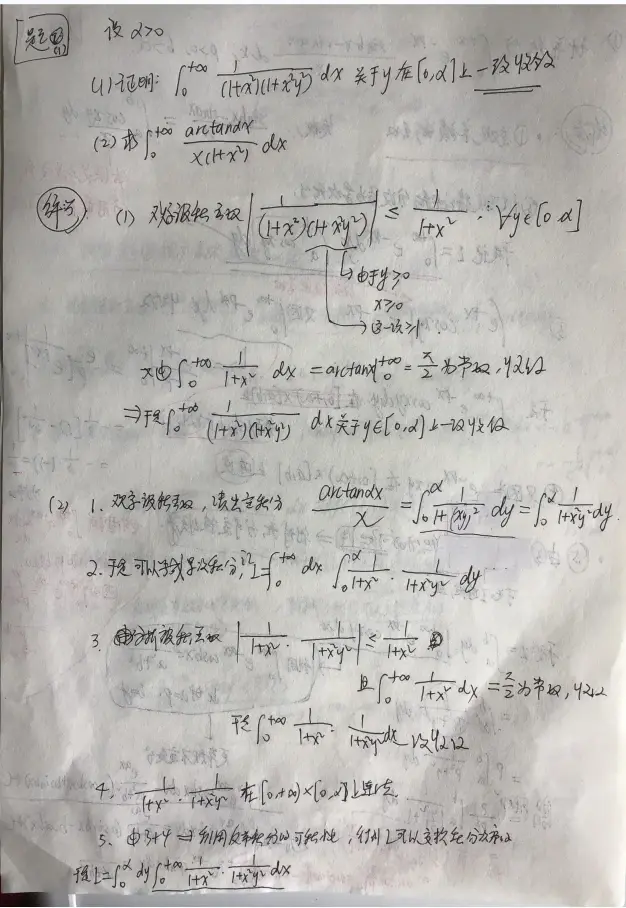 题型(1)
设 α>0
(1) 证明: ∫₀^{+∞} 1/((1+x²)(1+x²y²)) dx 关于y在[0,α]上一致收敛
(2) 求 ∫₀^{+∞} arctanαx/(x(1+x²)) dx
解析
(1) 对于被积函数 |1/((1+x²)(1+x²y²))| ≤ 1/(1+x²), ∀y∈[0,α]
由于y≥0
x≥0
这一项≥1.
又由 ∫₀^{+∞} 1/(1+x²) dx = arctanx|₀^{+∞} = π/2 为常数, 收敛
⇒ 于是 ∫₀^{+∞} 1/((1+x²)(1+x²y²)) dx 关于y∈[0,α]上一致收敛
(2) 1. 对于被积函数, 凑出定积分 arctanαx/x = ∫₀^α 1/(1+(xy)²) dy = ∫₀^α 1/(1+x²y²) dy.
2. 于是可以写成累次积分, I=∫₀^{+∞} dx ∫₀^α 1/(1+x²) · 1/(1+x²y²) dy
3. 分析被积函数 |1/(1+x²) · 1/(1+x²y²)| ≤ 1/(1+x²)
且 ∫₀^{+∞} 1/(1+x²) dx = π/2 为常数, 收敛
于是 ∫₀^{+∞} 1/(1+x²) · 1/(1+x²y²) dx 一致收敛
4. 1/(1+x²) · 1/(1+x²y²) 在[0,+∞)×[0,α]上连续
5. 由3+4 ⇒ 利用反常积分的可积性, 得到I可以交换积分次序
于是I=∫₀^α dy ∫₀^{+∞} 1/(1+x²) · 1/(1+x²y²) dx